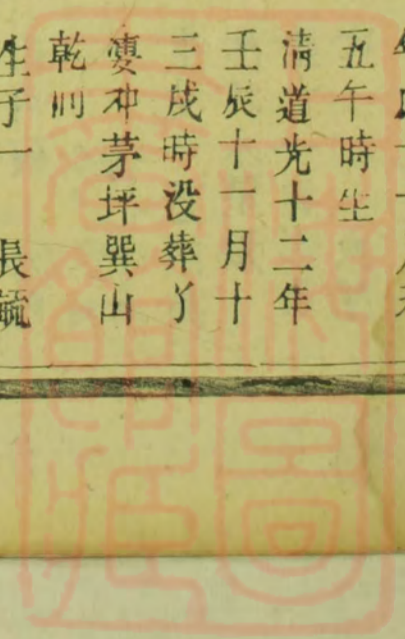 五午時生
清道光十二年
壬辰十一月十
三戌時没葬了
茅坪巽山
乾
生子一 長毓